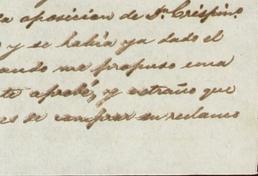 la aposicion de Sr. Créspin.
y se habia ya dado el
ando me propuso una
te apoché, y estraño que
es de comprar su reclamo